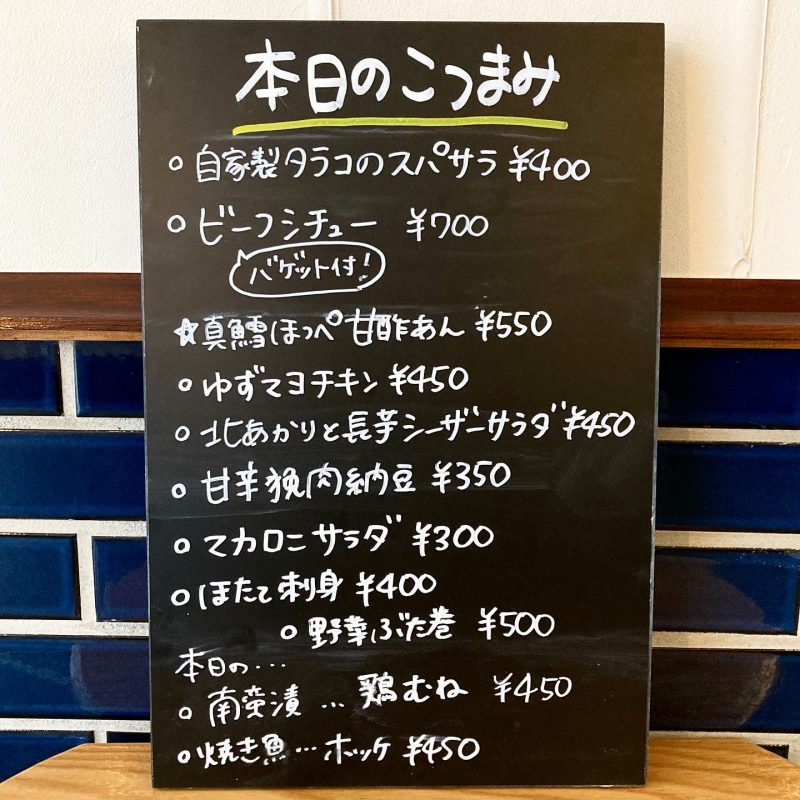 本日のこつまみ
○ 自家製タラコのスパサラ ¥400
○ ビーフシチュー ¥700
バゲット付!
☆真鱈ほっぺ甘酢あん ¥550
○ ゆずマヨチキン ¥450
○ 北あかりと長芋シーザーサラダ ¥450
○ 甘辛挽肉納豆 ¥350
○ マカロニサラダ ¥300
○ ほたて刺身 ¥400
○ 野菜ぶた巻 ¥500
本日の…
○ 南蛮漬 … 鶏むね ¥450
○ 焼き魚… ホッケ ¥450